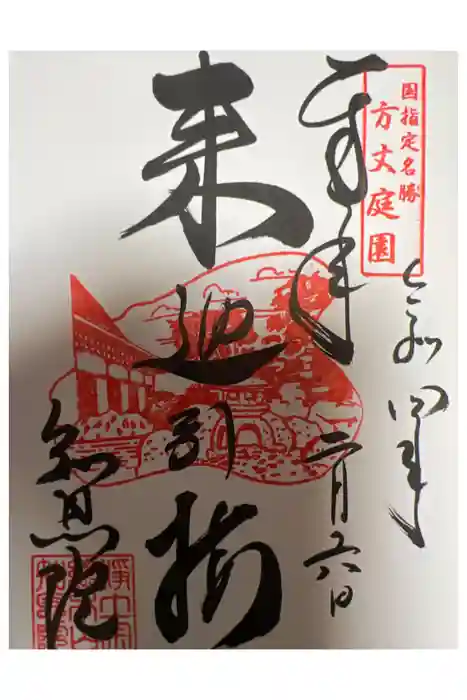 国指定名勝
方丈庭園
奉拝
令和四年
二月六日
来迎引接
知恩院